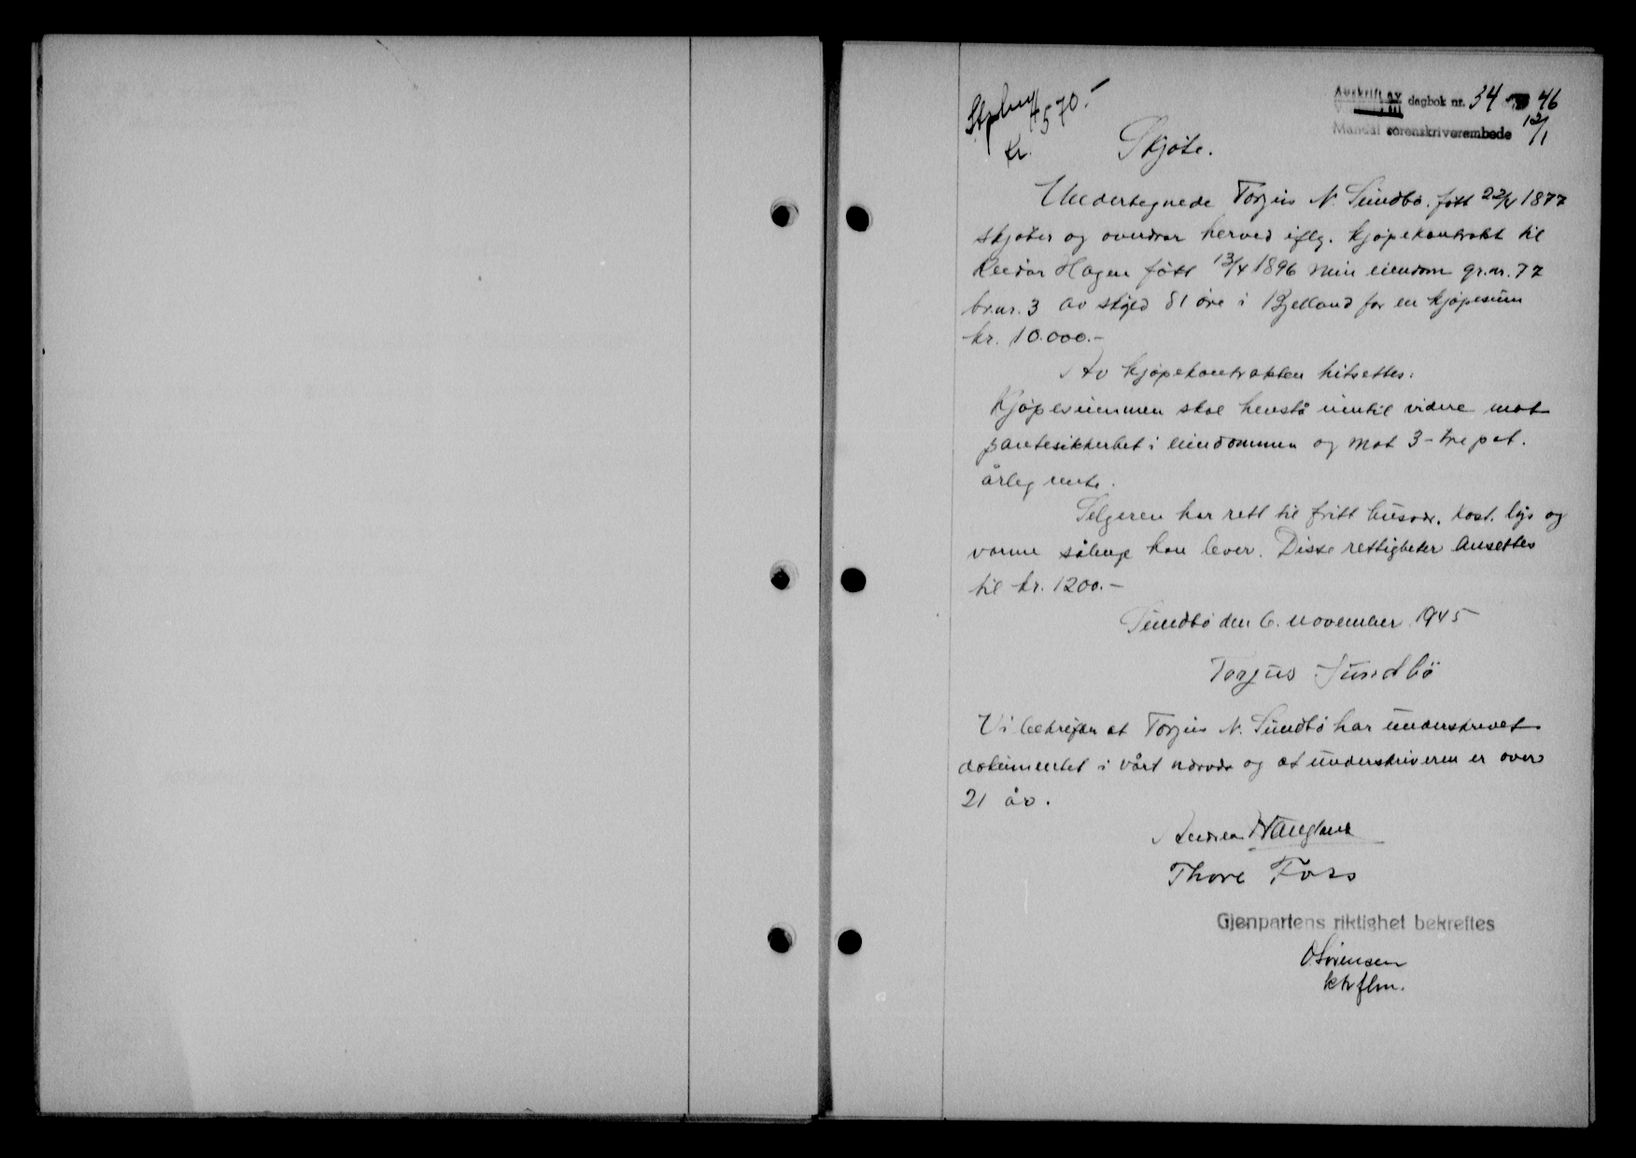 Avskrift av dagbok nr. 34 46
Mandal sorenskriverembede 12/1
kr. 4570.-
Skjøte.
Undertegnede Torjus N. Sundbø. født 22/4 1877
skjøter og overdrar herved iflg. kjøpekontrakt til
Reidar Hagen født 13/4 1896 min eiendom gr.nr. 77
br.nr. 3 av skyld 81 øre i Bjelland for en kjøpesum
kr. 10.000.-
Av kjøpekontrakten hitsettes:
Kjøpesummen skal henstå inntil videre mot
pantesikkerhet i eiendommen og mot 3- tre pct.
årleg rente.
Selgeren har rett til fritt husvær, kost, lys og
varme sålenge han lever. Disse rettigheter ansettes
til kr. 1200.-
Sundbø den 6. november 1945
Torjus Sundbö
Vi bekrefter at Torjus N. Sundbø har underskrevet
dokumentet i vårt nærvær og at underskriveren er over
21 år.
Andreas Haugland
Thore Foss
Gjenpartens riktighet bekreftes
O Sørensen
ktrflm.